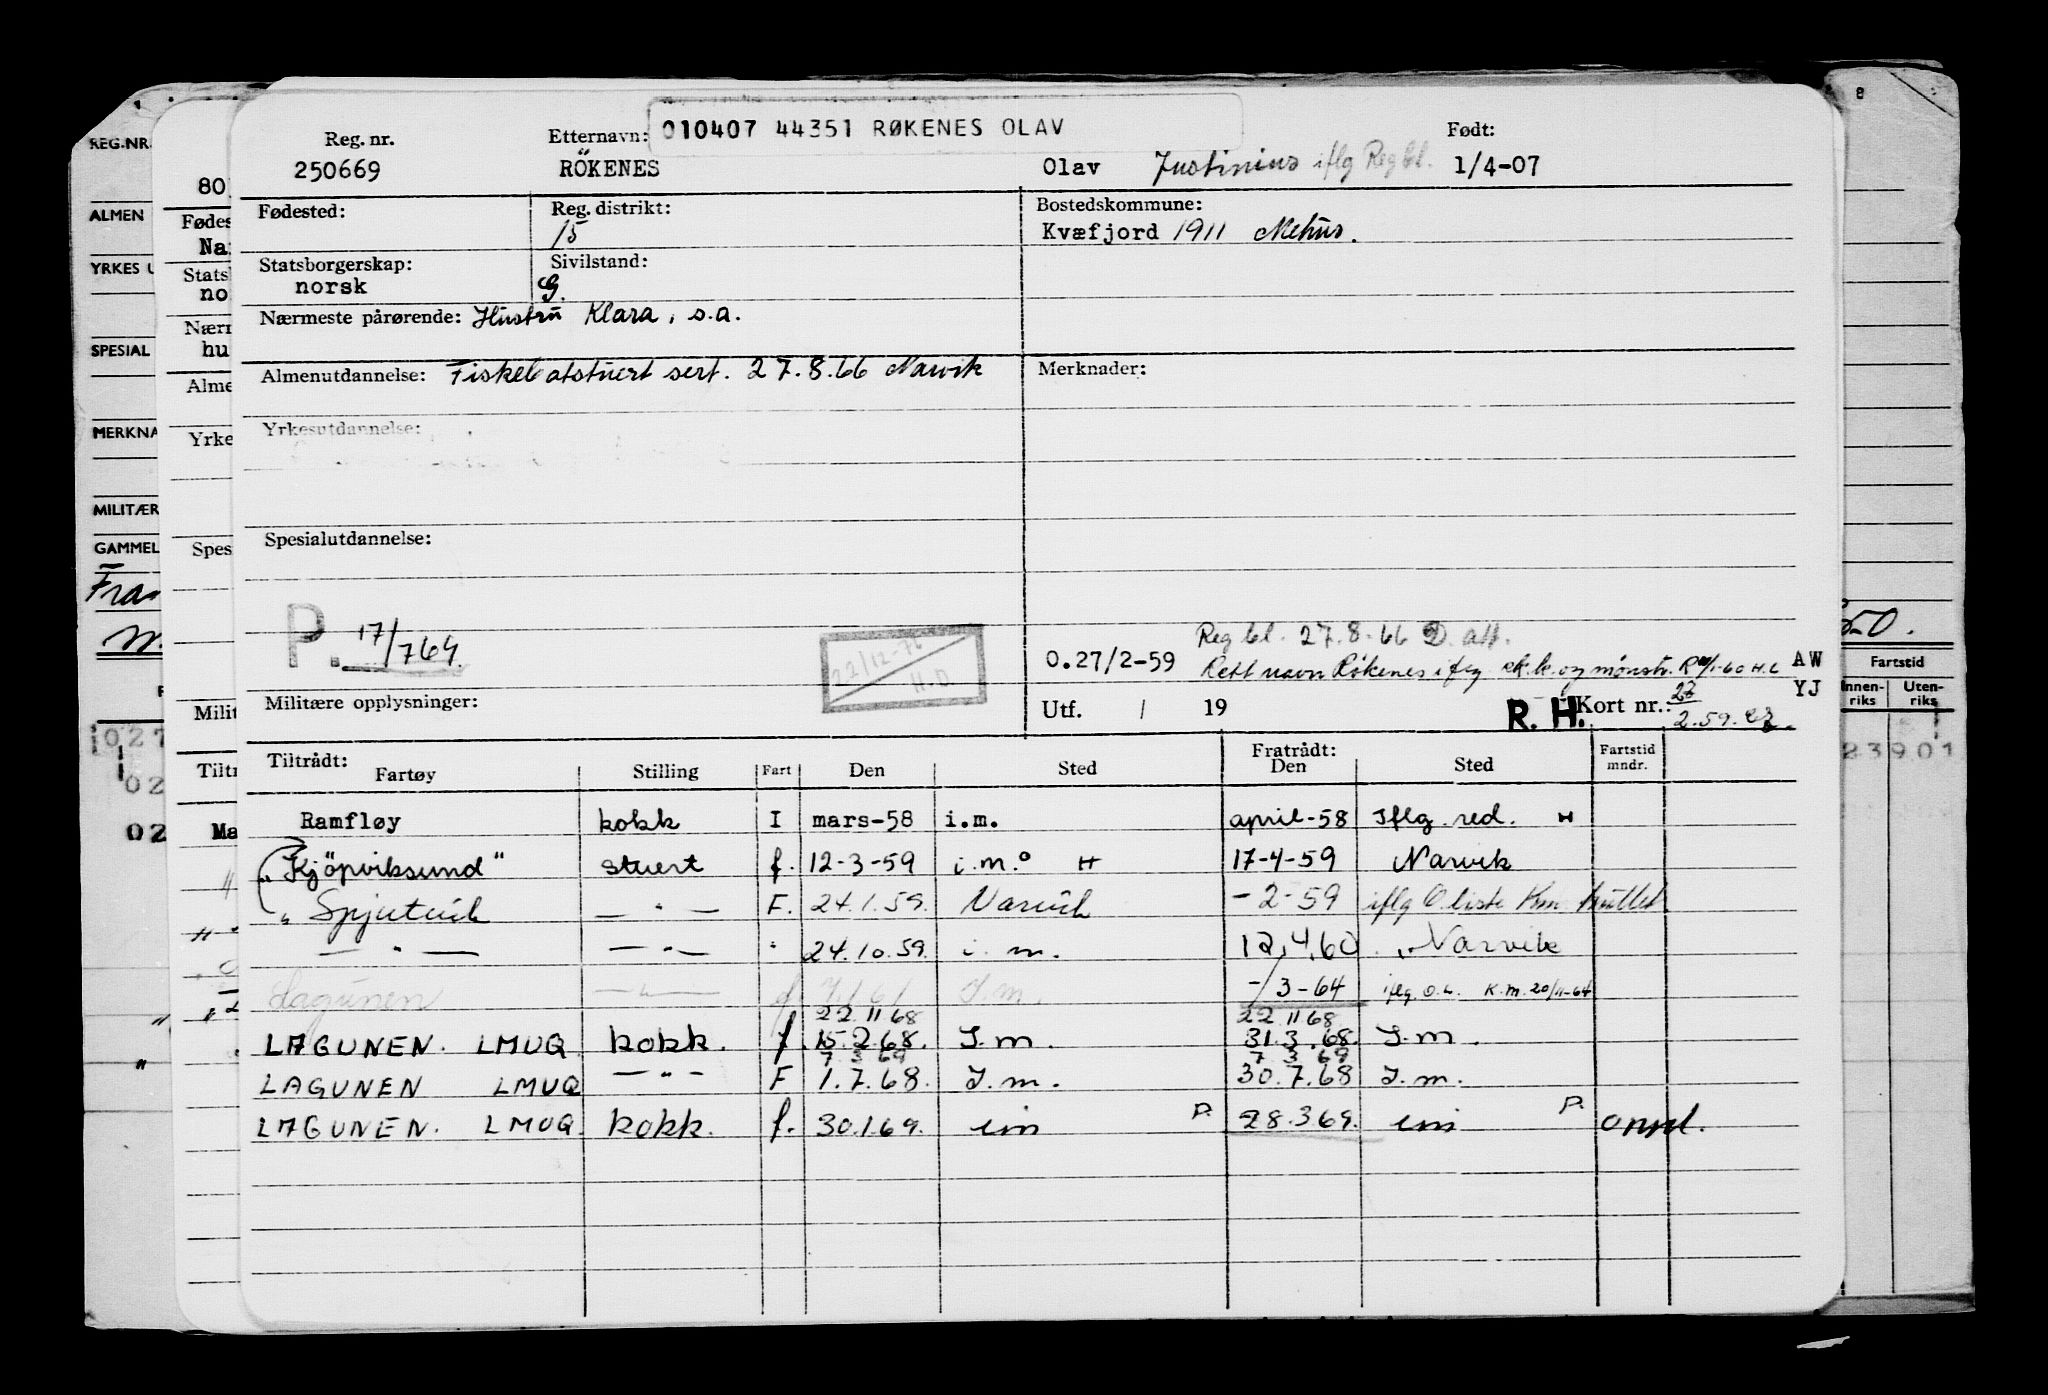 010407 44351 RØKENES OLAV
Reg. nr. Etternavn: Født:
250669 RÖKENES Olav Justinius iflg Reg bl. 1/4-07
Fødested: Reg. distrikt: Bostedskommune:
15 Kvæfjord 1911 Mehus.
Statsborgerskap: Sivilstand:
norsk G.
Nærmeste pårørende: Hustru Klara, s.a.
Almenutdannelse: Fiskebåtstuert sert. 27.8.66 Narvik Merknader:
Yrkesutdannelse:
Spesialutdannelse:
P. 17/769. 22/12-76 H.D.
Reg bl. 27.8.66 D. att.
O.27/2-59 Rett navn Rökenes iflg sk.k. og mønstr. 1-60 H.L AW
YJ
Militære opplysninger: Utf. / 19 R. H. Kort nr.: 2.59.
Tiltrådt: Fratrådt:
Fartøy Stilling Fart Den Sted Den Sted Fartstid mndr.
Ramfløy kokk I mars-58 i.m. april-58 Iflg. red. H
"Kjöpviksund" stuert f. 12-3-59 i.m. H 17-4-59 Narvik
" Spjutvik — " — F. 24.1.59. Narvik -2-59 iflg O liste Km.
— " — — " — " 24.10.59. i.m. 12.4.60 Narvik
Lagunen — " — f I.m. -/3-64 iflg O.L. K.M. 20/11-64
22.11 68 22.11 68
LAGUNEN. LMUQ kokk. f. 15.2.68. I.m. 31.3.68. I.m.
7.3 69 7 3 69
LAGUNEN LMUQ — " — F 1.7.68. I.m. 30.7.68 I.m.
LAGUNEN. LMUQ. kokk. f. 30.1.69. im P. 28.3.69. im P. omnl.
REG.NR.
ALMEN
YRKES U
SPESIAL
MERKNA
MILITÆR
GAMMEL
Fra
80
Fødes
Na
Stats
no
Nærn
hu
Alme
Yrke
Spes
Milit
Tiltr
Ma
1027
02
02
8
50.
Fartstid
Innen-riks Uten-riks
23901